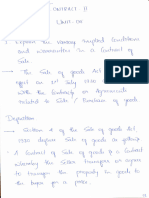 CONTRACT II
UNIT-04
Explain the various implied conditions
and warranties in a contract of
Sale
The Sale of goods Act
on 1st July 1930
with the Contracts or Agreements
related to Sale / Purchase of goods
Definition
Section 4 of the Sale of goods Act,
1930 defines Sale of goods as
A Contract of Sale of goods is a Contract
whereby the Seller transfers or agrees
to transfer the property in goods to
the buyer for a price